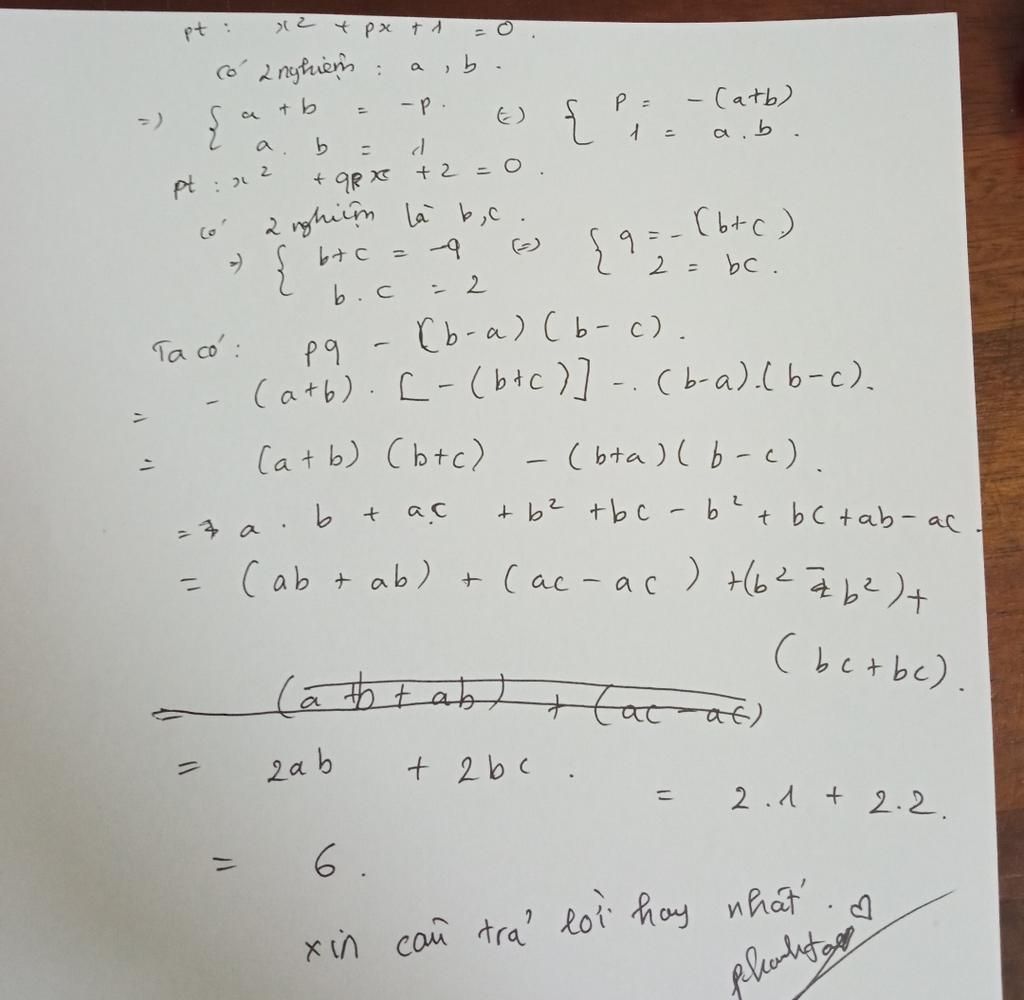 pt : x² + px + 1 = 0 .
có 2 nghiệm : a , b .
=) { a + b = -p . (=) { p = -(a+b)
a . b = 1 1 = a . b .
pt : x² + qx + 2 = 0 .
có 2 nghiệm là b,c .
=) { b+c = -q (=) { q = -(b+c)
b . c = 2 2 = bc .
Ta có : pq - (b-a) (b-c) .
= - (a+b) . [-(b+c)] - (b-a).(b-c).
= (a+b) (b+c) - (b+a)(b-c) .
= a . b + ac + b² + bc - b² + bc + ab - ac .
= (ab + ab) + (ac - ac) + (b² - b²) +
(bc + bc) .
= (a+b + ab) + (ac - ac)
= 2ab + 2bc .
= 2.1 + 2.2.
= 6 .
xin câu trả lời hay nhất . ♡